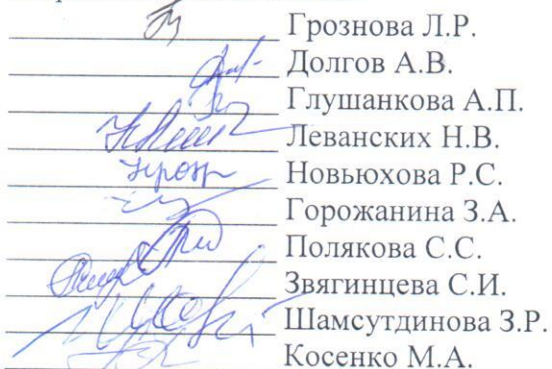 Грознова Л.Р.
Долгов А.В.
Глушанкова А.П.
Леванских Н.В.
Новьюхова Р.С.
Горожанина З.А.
Полякова С.С.
Звягинцева С.И.
Шамсутдинова З.Р.
Косенко М.А.